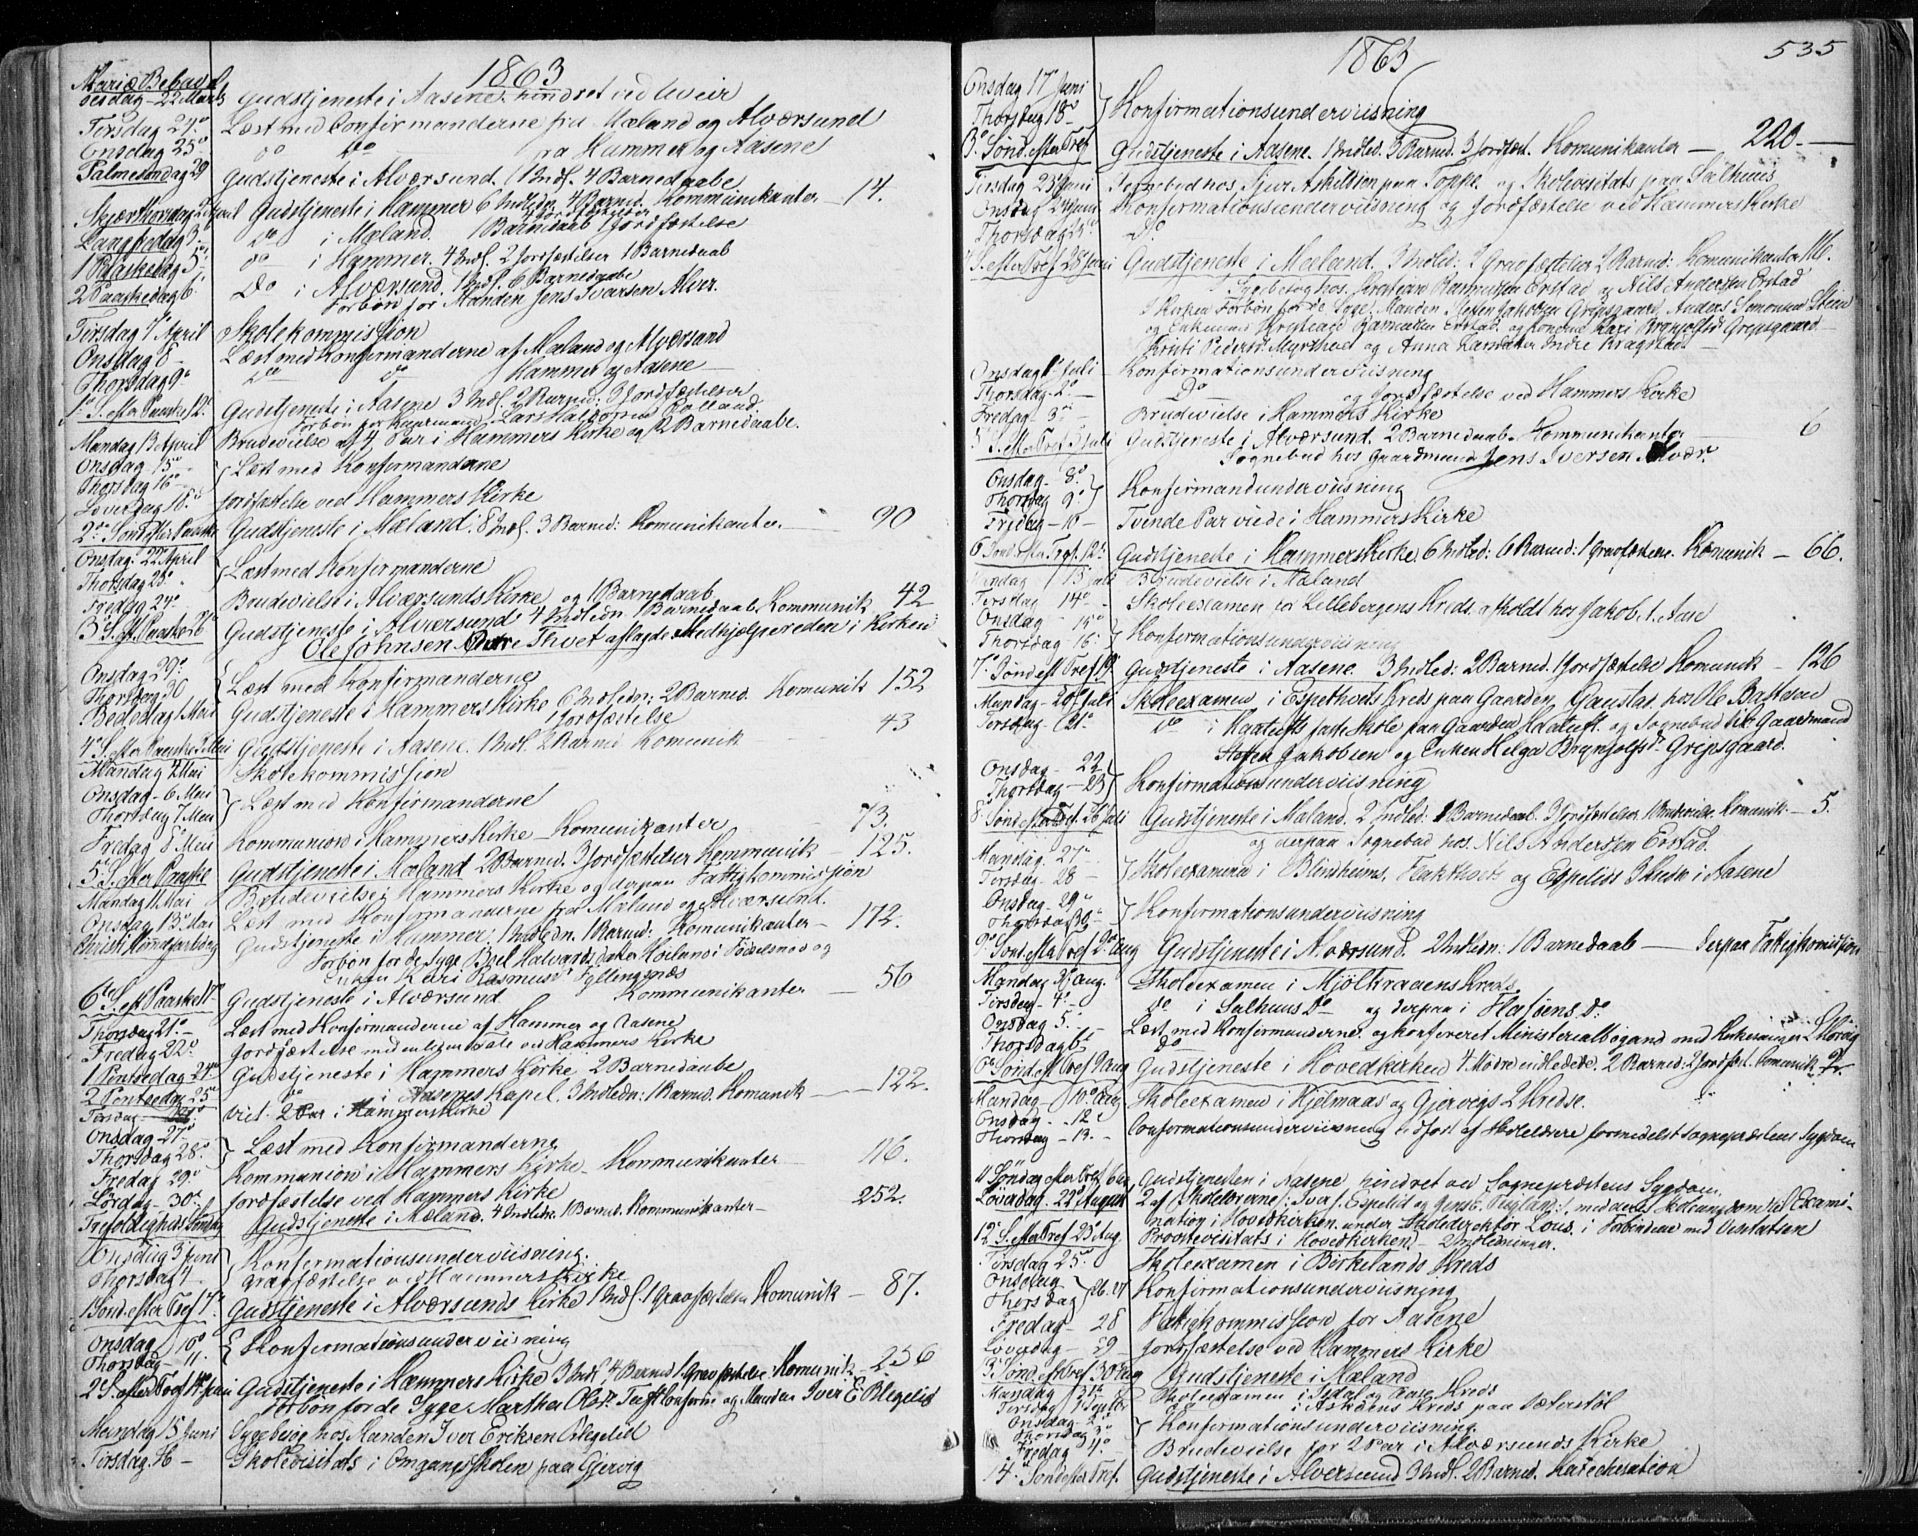 1863
Mariæ Bebud.
Gudstjeneste i Aasene hindret ved Uveir
Tirsdag 24º Læst med Confirmanderne fra Mæland og Alværsund
Onsdag 25º do Do fra Hammer og Aasene
Palmesøndag 29 Gudstjeneste i Alværsund. 1 Indl. 4 Barnedaabe
Skjærthorsdag 2 April Gudstjeneste i Hammer 6 Indledn. 4 Barned. Kommunikanter 14.
Langfredag 3º Do i Mæland. 1 Barnedaab 1 Jordfæstelse
1 Paaskedag 5º do i Hammer. 4 Indl. 2 Jordfæstelser 1 Barnedaab
2 Paaskedag 6º Do i Alværsund. 1 Indl. 6 Barnedaabe
Forbøn for Manden Jens Iversen Alver.
Tirsdag 7º April Skolekommission
Onsdag 8 Læst med Konfirmanderne af Mæland og Alværsund
Thorsdag 9º Do do Hammer og Aasene
1º S. efter Paaske 12º Gudstjeneste i Aasene 3 Indl. 2 Barned. 3 Jordfæstelser
Mandag 13 April Brudevielse af 4 Par i Hammers Kirke og 2 Barnedaabe.
Onsdag 15º Læst med Konfirmanderne
Thorsdag 16º
Løverdag 18º Jordfæstelse ved Hammers Kirke
2º Sønd. efter Paaske Gudstjeneste i Mæland. 8 Indl. 3 Barned: Komunikanter 90
Onsdag 22 April Læst med Konfirmanderne
Thorsdag 23º
Fredag 24º Brudevielse i Alværsunds Kirke og 1 Barnedaab
3º S. eft. Paaske 26º Gudstjeneste i Alværsund 4 Indledn. 1 Barnedaab Kommunik 42
Ole Johnsen Thvet aflagde Medhjælpereden i Kirken
Onsdag 29º Læst med Konfirmanderne
Thorsdag 30
Bededag 1 Mai Gudstjeneste i Hammers Kirke 6 Indledn: 2 Barned. Komunik 152
1 Jordfæstelse
4º S. efter Paaske 3 Mai Gudstjeneste i Aasene. 1 Indl. 2 Barned Komunik 43
Mandag 4 Mai Skolekommission
Onsdag 6 Mai Læst med Konfirmanderne
Thorsdag 7 Mai
Fredag 8 Mai Kommunion i Hammers Kirke Komunikanter 73.
5º S. efter Paaske Gudstjeneste i Mæland 2 Barned. 3 Jordfæstelser Kommunik 125.
Mandag 11 Mai Brudevielse i Hammers Kirke og derpaa Fattigkommission
Onsdag 13º Mai Læst med Konfirmanderne fra Mæland og Alværsund.
Christi Himmelfartsdag Gudstjeneste i Hammer. 1 Indledn. 1 Barned: Komunikanter 172.
Forbøn for de Syge i Fødselsnød og
Enken Kari Rasmusd. Fyllingsnæs
6te S. eft Paaske 17º Gudstjeneste i Alværsund Kommunikanter 56
Thorsdag 21º Læst med Konfirmanderne af Hammer og Aasene
Fredag 22º Jordfæstelse med en liden Tale ved Hammers Kirke
1 Pentsedag 24º Gudstjeneste i Hammers Kirke 2 Barnedaabe
2 Pentsedag 25º do i Aasenes Kapel. 3 Indledn: 1 Barned. Komunik 122.
Tirsdag viet 2 Par i Hammers Kirke
Onsdag 27º Læst med Konfirmanderne
Thorsdag 28º
Fredag 29º Kommunion i Hammers Kirke Kommunikanter 116.
Lørdag 30º Jordfæstelse ved Hammers Kirke
Trefoldigheds Søndag Gudstjeneste i Mæland. 4 Indledn. 1 Barned. Kommunikanter 252.
Onsdag 3 Juni Konfirmationsunderviisning.
Thorsdag 4 Gravfæstelse ved Hammers Kirke
1 Sønd. efter Tref 7º Gudstjeneste i Alværsunds Kirke 1 Indl. 1 Gravfæstelse Komunik 87.
Onsdag 10º Konfirmationsunderviisning
Thorsdag 11.
2º S. efter Tref 14º Juni Gudstjeneste i Hammers Kirke 3 Indl. 4 Barned. 1 Gravfæstelse Komunik 256
Forbøn for de Syge Marthe Olsd. Konfirm og Manden Iver E. Blegelid
Mandag 15 Juni Sygebesøg hos Manden Iver Eriksen Blegelid
Tirsdag 16 Skolevisitats i Omgangsskolen paa Gjervig
1863
535
Onsdag 17 Juni Konfirmationsunderviisning
Thorsdag 18º
3º Sønd. efter Tref Gudstjeneste i Aasene. 1 Indled. 3 Barned. 3 Jordfæst. Komunikanter 220.
Tirsdag 23 Juni Sognebud hos Sjur Askildsen paa Toppe og Skolevisitats paa Salhuus
Onsdag 24 Juni Konfirmationsunderviisning og Jordfæstelse ved Hammers Kirke
Thorsdag 25º Do
S. efter Tref 28º Juni Gudstjeneste i Mæland. 3 Indled: Gravfæstelser 2 Barned: Komunikanter 116.
Sygebesøg hos Rasmusen Evstad og Nils Andersen Evstad
I Kirken Forbøn for de Syge: Manden Steffen Jakobsen Gripsgaard, Anders Simonsen
Gripsgaard
og Anna
Onsdag 1º Juli Konfirmationsunderviisning
Thorsdag 2º Do og Jordfæstelse ved Hammers Kirke
Fredag 3º Brudevielse i Hammers Kirke
5 S. efter Tref 5 Juli Gudstjeneste i Alværsund. 2 Barnedaab. Kommunikanter 6
Sognebud hos Gaardmand Jens Iversen Alvær.
Onsdag 8º Konfirmandunderviisning
Thorsdag 9º
Fredag 10 Tvende Par viede i Hammers Kirke
6 Sønd. efter Tref. 12º Gudstjeneste i Hammers Kirke. 6 Indled: 6 Barned: 1 Gravfæstelse. Komunik 66.
Mandag 13 Juli Brudevielse i Mæland
Tirsdag 14º Skoleexamen for Lillebergens Kreds afholdt hos Jakob
Onsdag 15º Konfirmationsunderviisning
Thorsdag 16º
7º Sønd. eft Tref 19º Gudstjeneste i Aasene. 3 Indled: 2 Barned. 1 Jordfæstelse Komunik 126
Mandag 20º Juli Skoleexamen i Espetvedts Kreds paa Gaarden Gaustad hos Ole
Tirsdag 21º do i faste Skole paa Gaarden og Sognebud til Gaardmand
Steffen Jakobsen og Enken Helga Brynjolfsdr. Gripsgaard.
Onsdag 22 Konfirmationsunderviisning
Thorsdag 23
8º Sønd. efter Tref. 26 Juli Gudstjeneste i Mæland. 2 Indled: 1 Barnedaab. 3 Jordfæstelser Komunik 5.
og derpaa Sognebud hos Nils Andersen Evstad.
Mandag 27 Skoleexamen i Blindheims, og Espelids Kreds i Aasene
Tirsdag 28
Onsdag 29º Konfirmationsunderviisning
Thorsdag 30
9º Sønd. efter Tref 2º Aug Gudstjeneste i Alværsund. 2 Indledn: 1 Barnedaab derpaa Fattigkomission
Mandag 3 Aug. Skoleexamen i Mjölkraaens Kreds
Tirsdag 4º do i Salhuus Do og derpaa i Do.
Onsdag 5. Læst med Konfirmanderne og konfereret Ministerialbogand med Kirkesanger
Thorsdag 6º do
Sønd. eft Tref 9 Aug Gudstjeneste i Hovedkirken 4 Mødre indledede. 2 Barned: 2 Jordfæst. Komunik
Mandag 10º Aug Skoleexamen i Hjelmaas og Gjervigs 2 Kredse.
Onsdag 12º Confirmationsunderviisning formedelst Sognepræstens Sygdom
Thorsdag 13.
11 Søndag efter Tref. Gudstjenesten i Aasene hindret ved Sognepræstens Sygdom.
Løverdag 22º August 2 af Skolelærerne Espelid og til Exami-
nation i Hovedkirken under Skoledirektør i Forbindelse med Visitatsen
12º S. efter Tref 23º Aug Provstevisitats i Hovedkirken.
Tirsdag 25º Skoleexamen i Birkelands Kreds
Onsdag Konfirmationsunderviisning
Thorsdag 26. 27
Fredag 28 Fattigkommission for Aasene
Løverdag 29 Jordfæstelse ved Hammers Kirke
Sønd. eft Tref 30 Aug Gudstjeneste i Mæland
Mandag Skoleexamen i Isdal og Aase Kreds
Tirsdag 1 Septbr do i Kreds paa Sæterstøl
Onsdag 2 Konfirmationsunderviisning
Thorsdag 3º
Fredag 4º Brudevielse for 2 Par i Alværsunds Kirke
14. Sønd efter Tref. Gudstjeneste i Alversund 3 Indl. 2 Barned. Katechesation